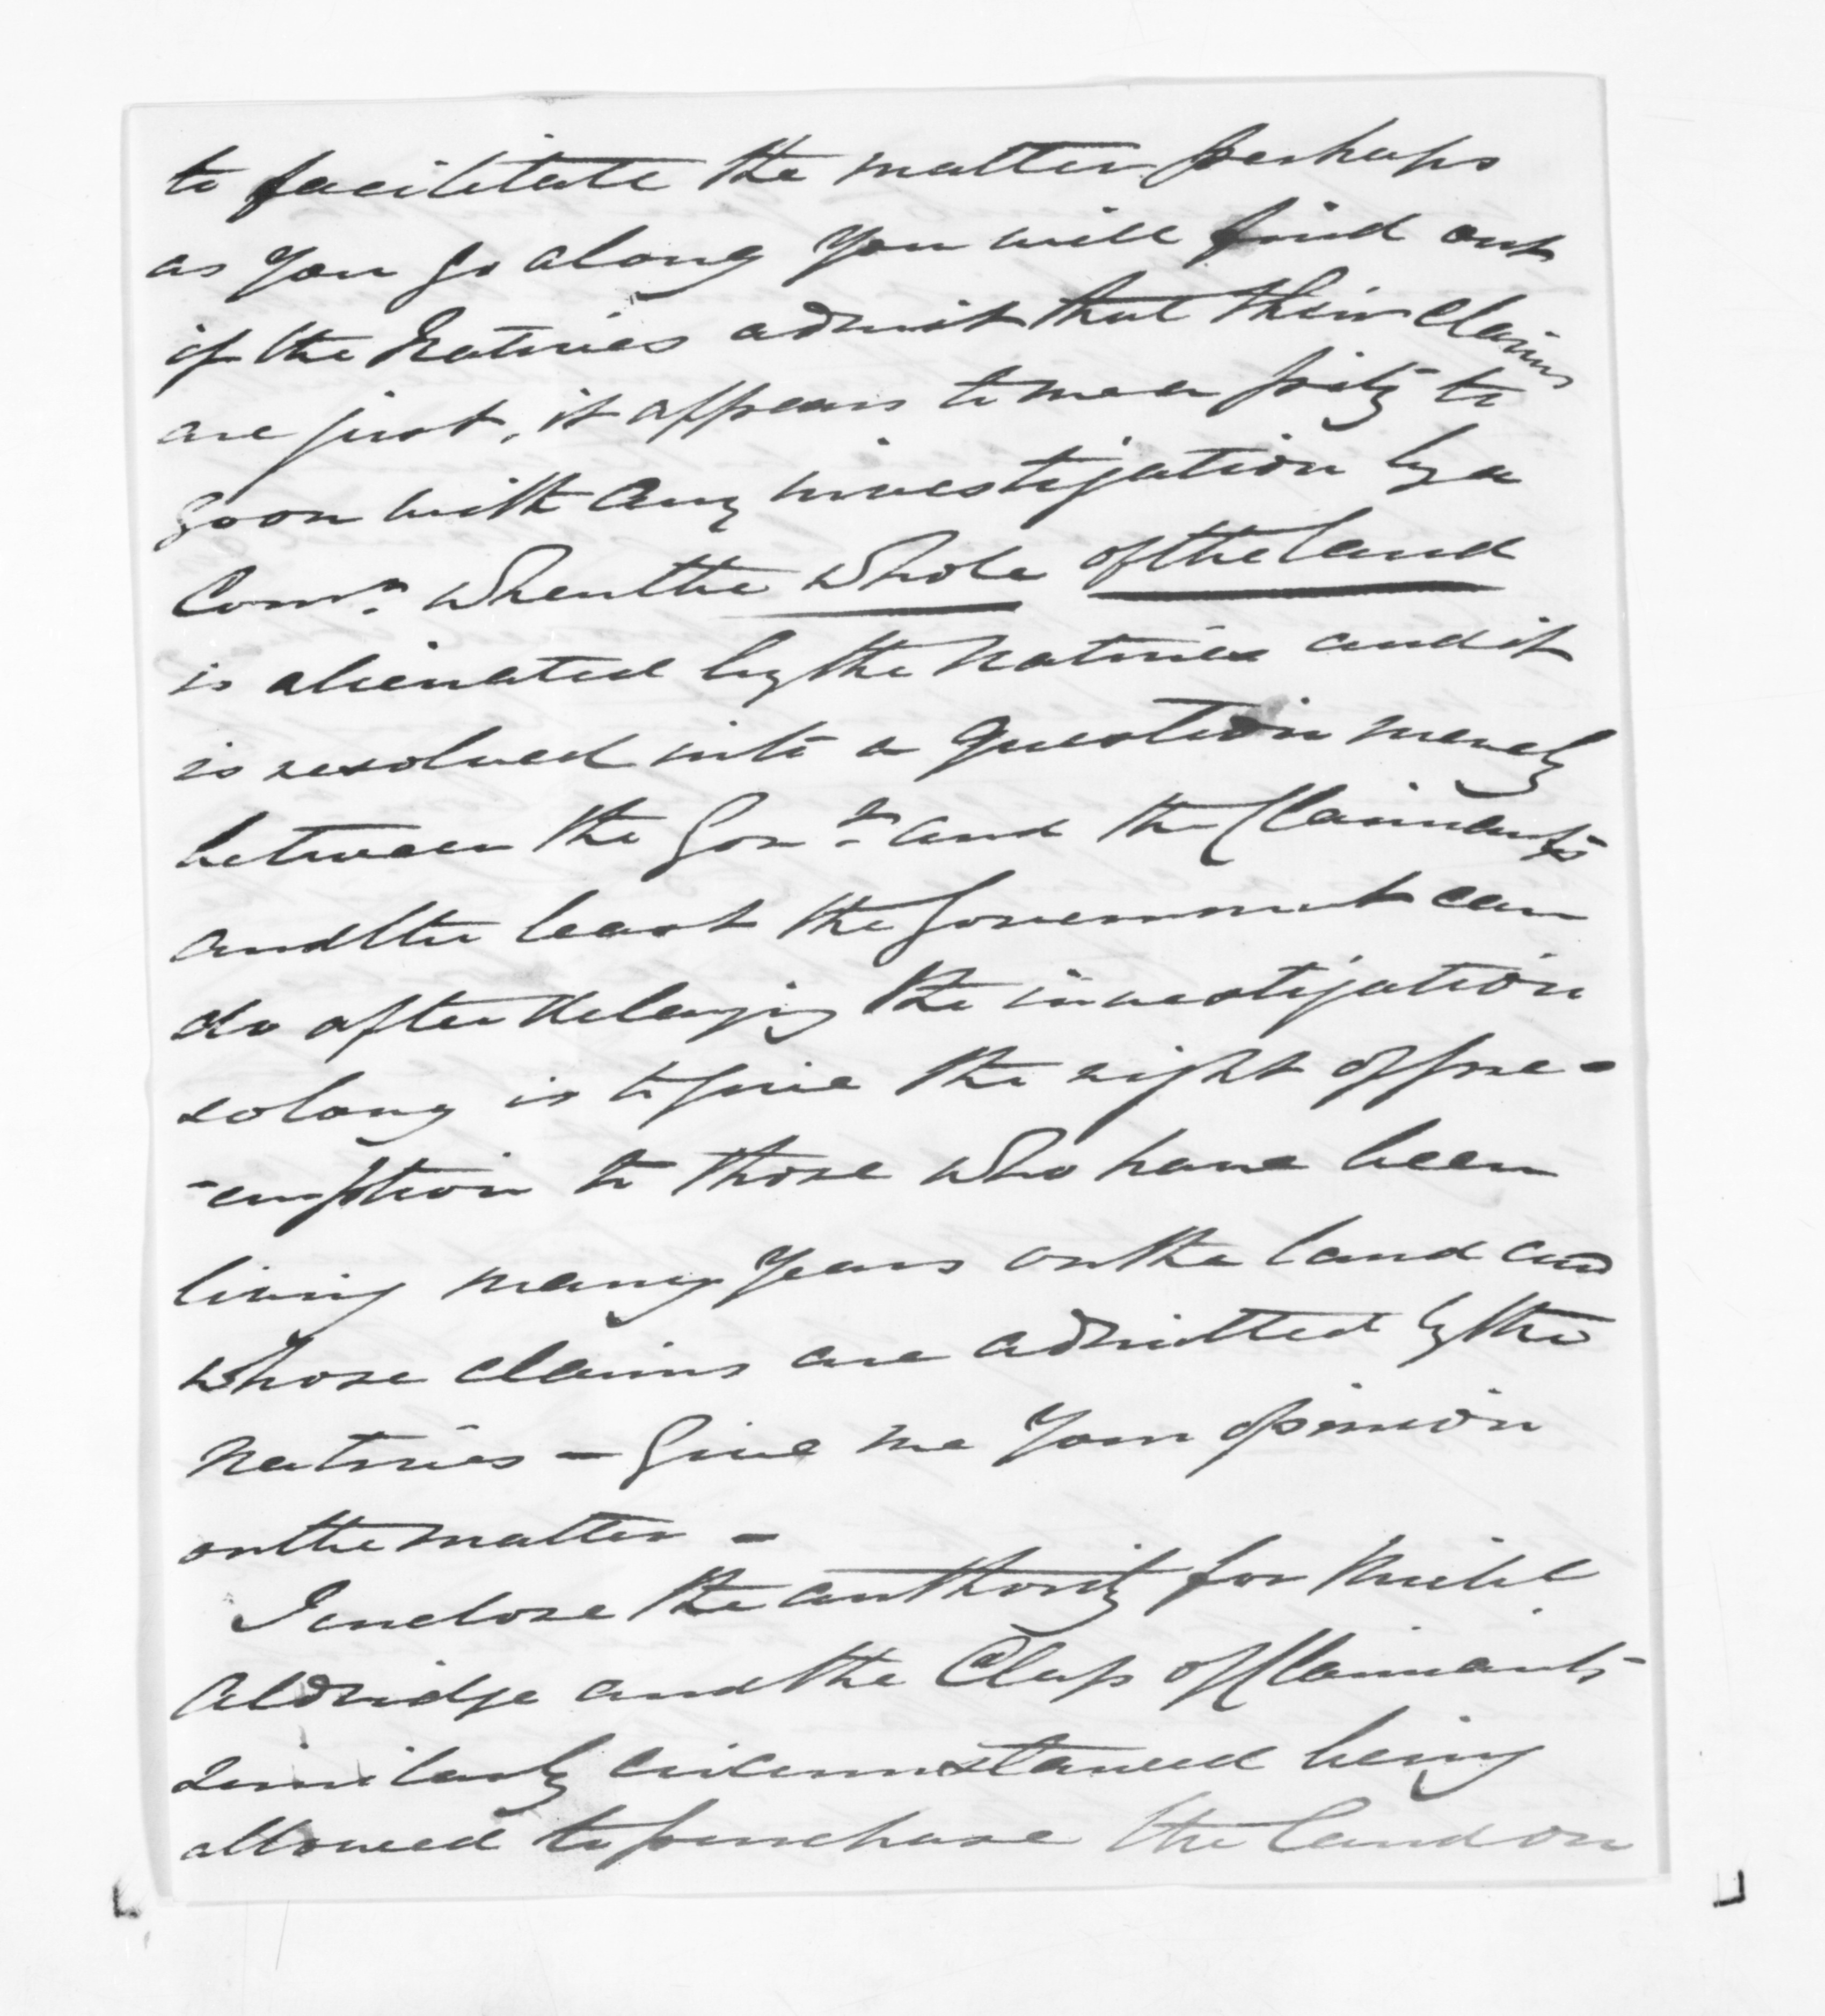 to facilitate the matter perhaps
as you go along you will find out
if the Natives admit that their claims
are just, it appears to me a pity to
go on with any investigation by a
Comr. when the whole of the land
is alienated by the Natives and it
is resolved into a question merely
between the Govt. and the Claimants
and the least the Government can
do after delaying the investigation
so long is to give the right of pre-
-emption to those who have been
living many years on the land and
whose claims are admitted by the
Natives - Give me your opinion
on the matter -
I enclose the authority for
Aldridge and the Class of Claimants
similarly circumstanced being
allowed to purchase the land on